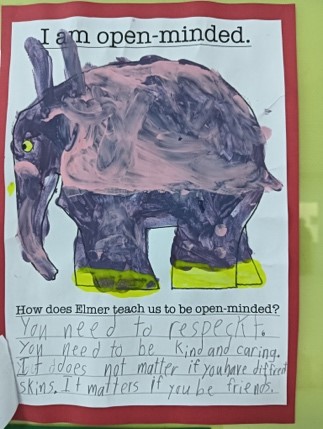 I am open-minded.
How does Elmer teach us to be open-minded?
You need to respeckt.
You need to be kind and caring.
It ddoes not matter if you have diffrent
skins. It matters if you be friends.